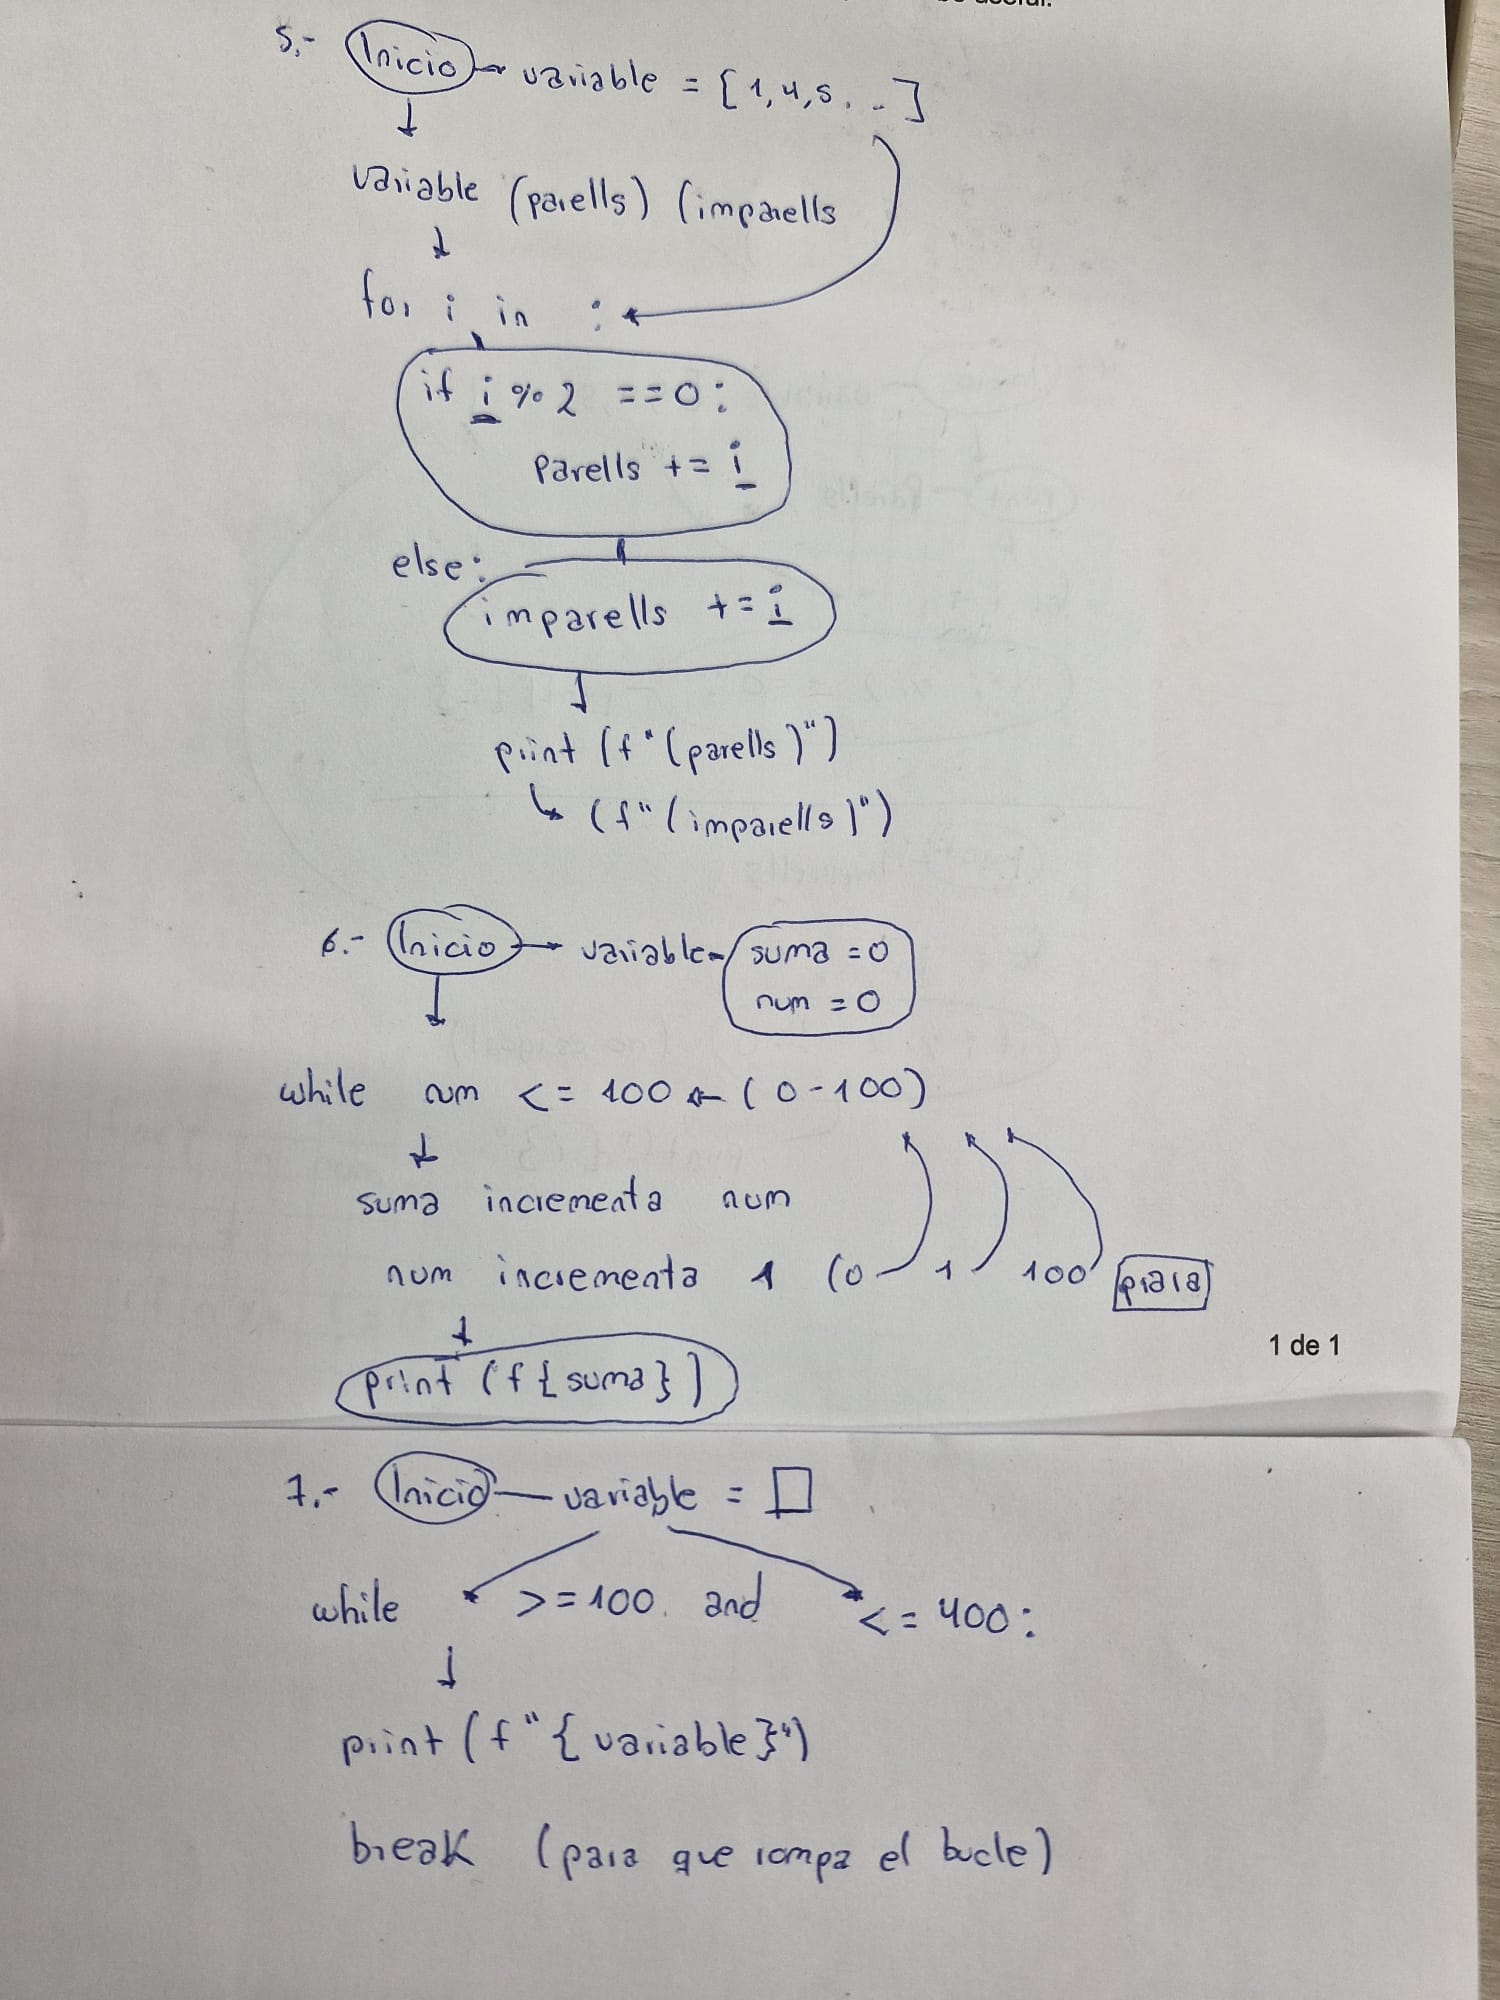 5.- Inicio variable = [1,4,5...]
variable (parells) (imparells
for i in :
if i % 2 == 0:
parells += i
else:
imparells += i
print (f"(parells)")
(f"(imparells)")
6.- Inicio variable suma = 0
num = 0
while num <= 100 (0-100)
suma incrementa num
num incrementa 1 (0 1 100
1 de 1
print (f{suma})
7.- Inicio variable =
while >=100 and <= 400:
print (f"{variable}")
break (para que rompa el bucle)